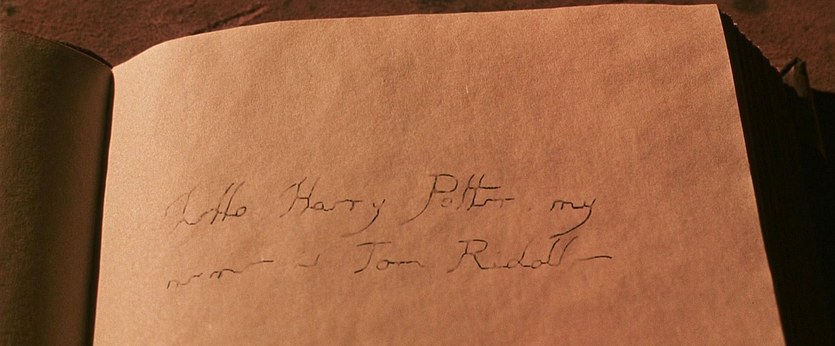 Hello Harry Potter, my
name is Tom Riddle